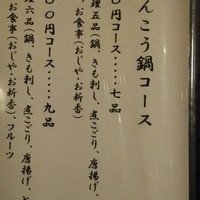 んこう鍋コース
〇円コース・・・・・七品
理五品（鍋、きも刺し、煮こごり、唐揚げ、
、お食事（おじや・お新香）
〇〇円コース・・・・・九品
理六品（鍋、きも刺し、煮こごり、唐揚げ、
、お食事（おじや・お新香）、フルーツ